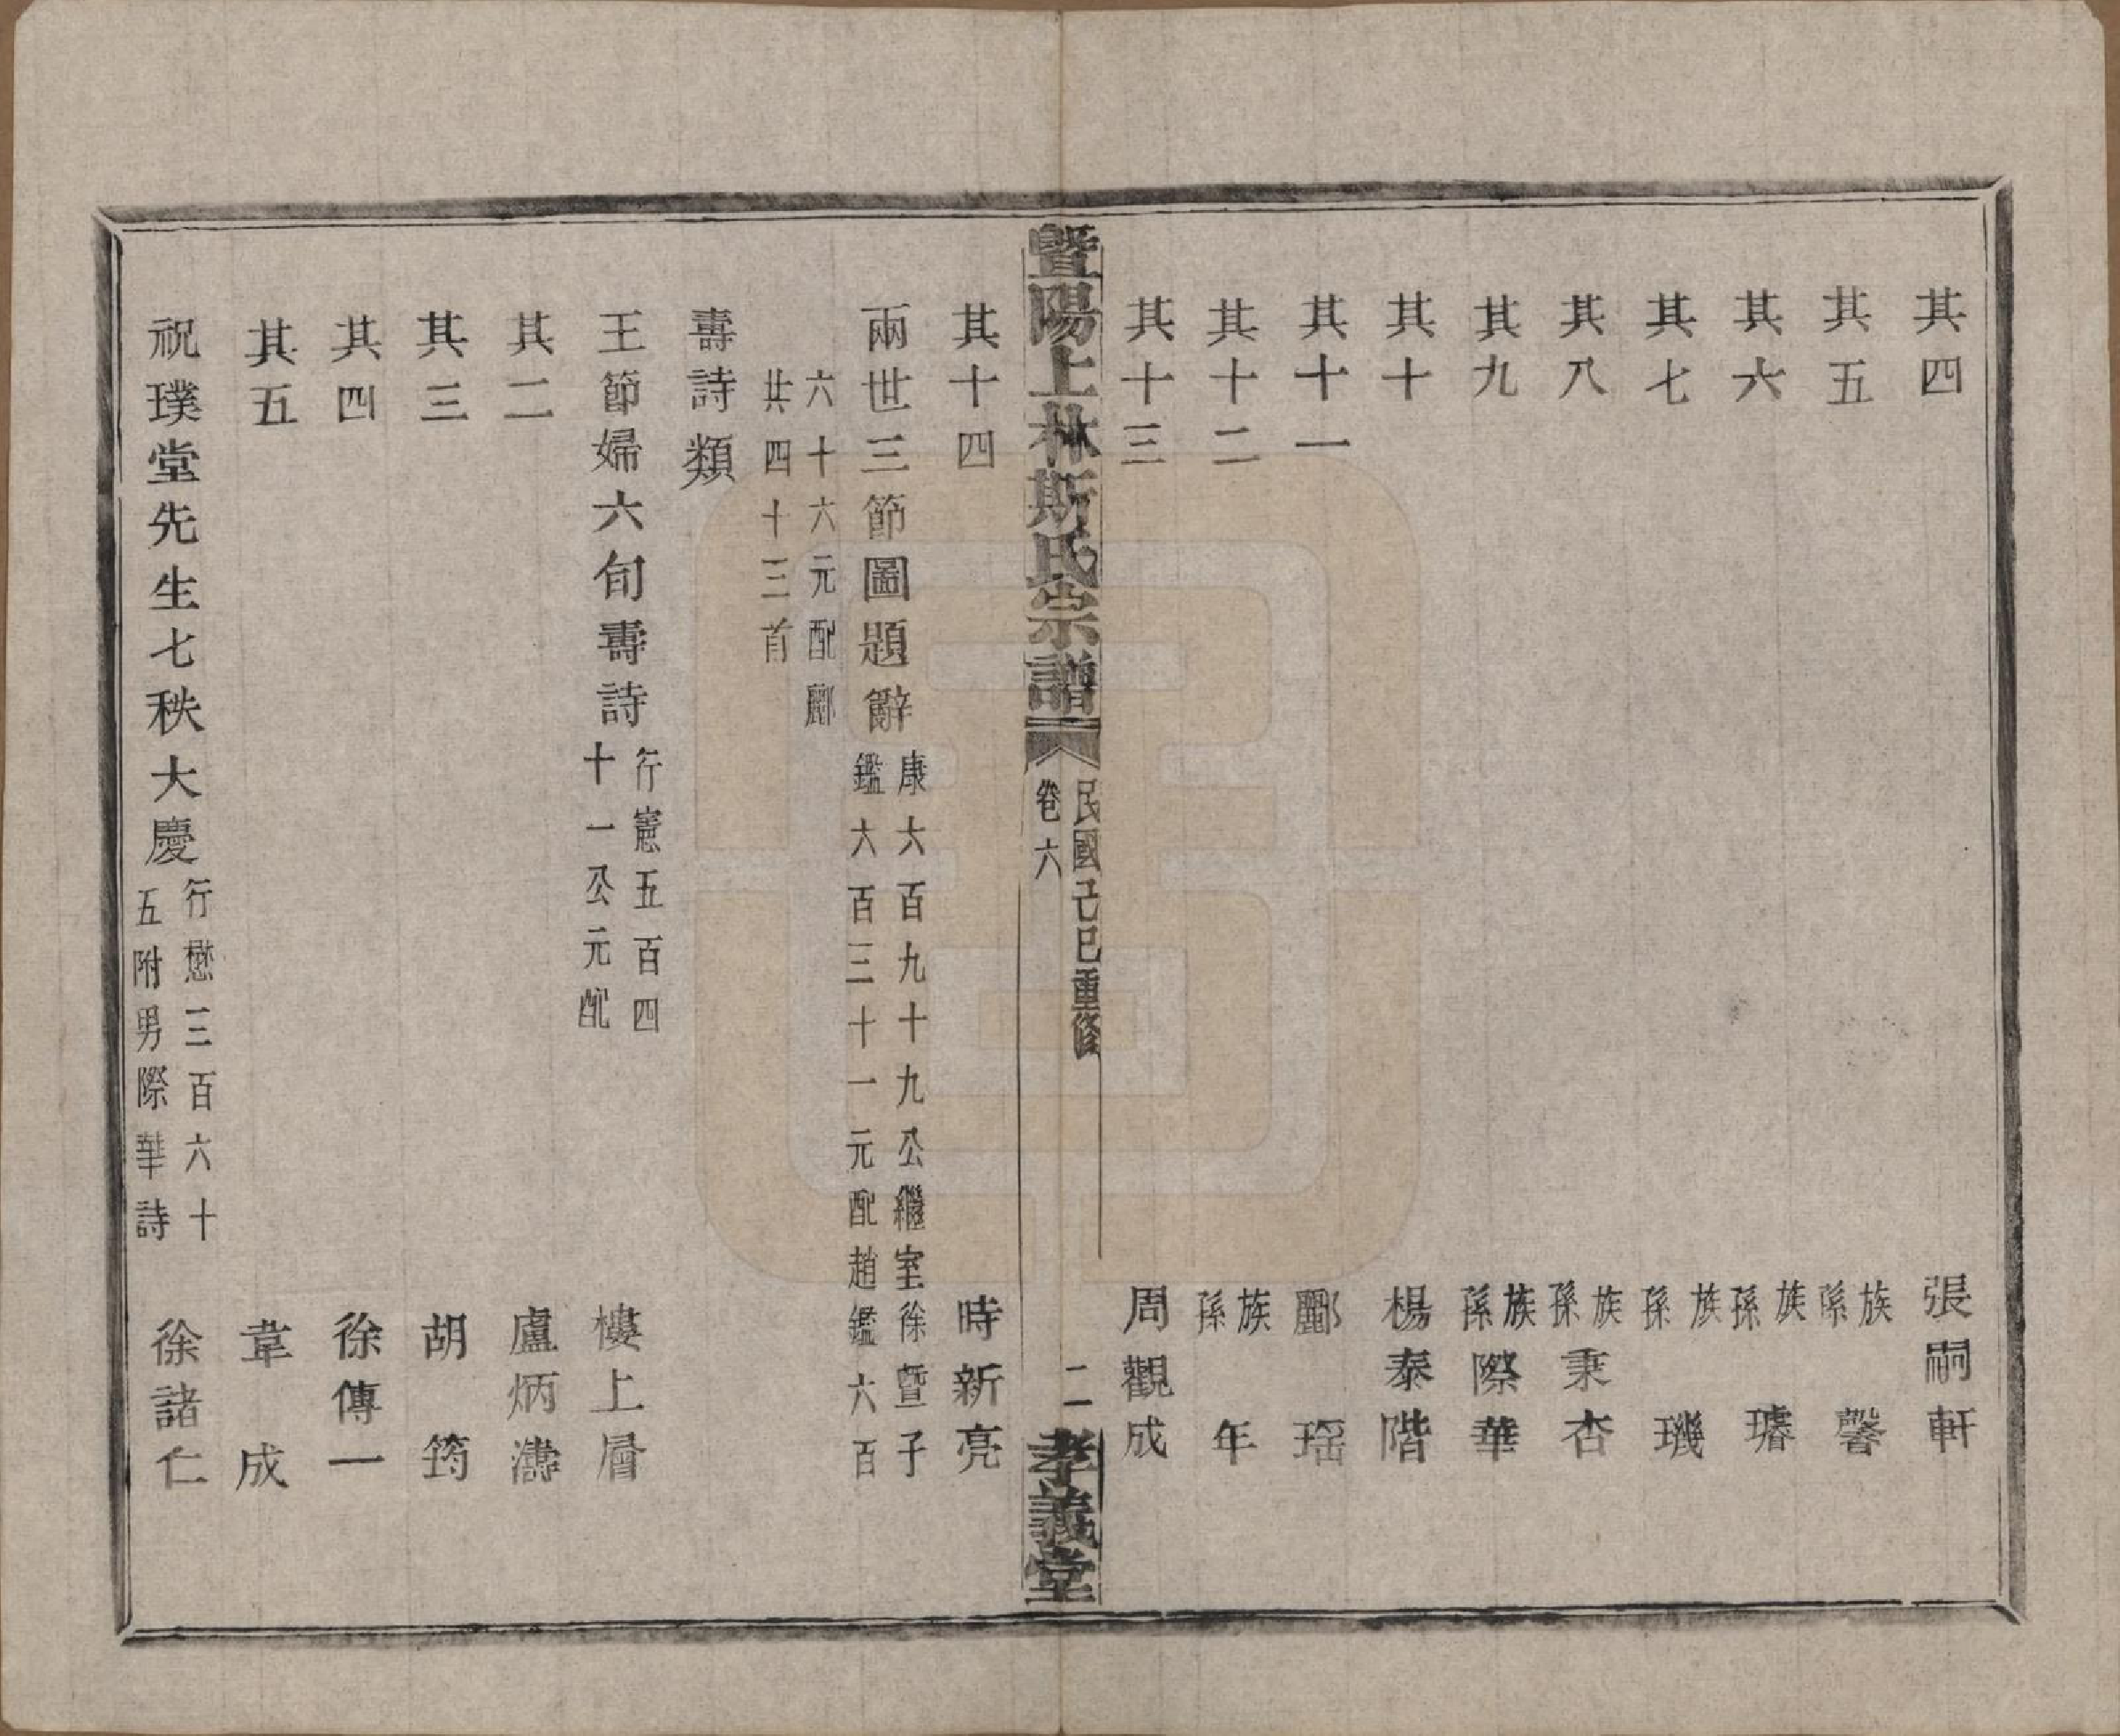 其四　張嗣軒
其五　族孫　馨
其六　族孫　璿
其七　族孫　璣
其八　族孫秉杏
其九　族孫際華
其十　楊泰階
其十一　酈　瑶
其十二　族孫　年
其十三　周觀成
暨陽上林斯氏宗譜　卷六　民國己巳重修　二　孝義堂
其十四　時新亮
兩世三節圖題辭　康六百九十九公繼室徐暨子
鑑六百三十一元配趙鑑六百
六十六元配酈
共四十三首
壽詩類
王節婦六旬壽詩　行憲五百四
十一公元配　樓上層
其二　盧炳濤
其三　胡　筠
其四　徐傳一
其五　韋　成
祝璞堂先生七秩大慶　行懋三百六十
五附男際華詩　徐諸仁